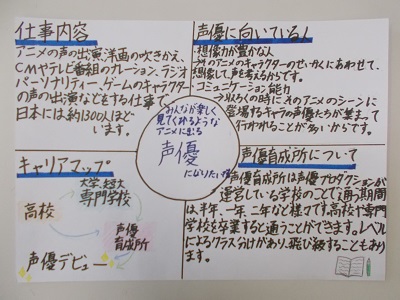 仕事内容
アニメの声の出演、洋画の吹きかえ、
CMやテレビ番組のナレーション、ラジオ
パーソナリティー、ゲームのキャラクター
の声の出演などをする仕事で
日本には約1300人ほど
います。
声優に向いている人
・想像力が豊かな人
アニメのキャラクターのせいかくにあわせて、
想像して声を考えるからです。
・コミュニケーション能力
しゅうろくの時にそのアニメのシーンに
登場するキャラの声優たちが集まって
行われることが多いからです。
みんなが楽しく
見てくれるような
アニメに出る
声優
になりたい
キャリアマップ
大学、短大
専門学校
高校
声優
育成所
声優デビュー
声優育成所について
声優育成所は声優プロダクションが
運営している学校のことで通う期間
は半年、一年、二年など様々です。高校や専門
学校を卒業すると通うことができます。レベル
によるクラス分けがあり、飛び級することもあり
ます。